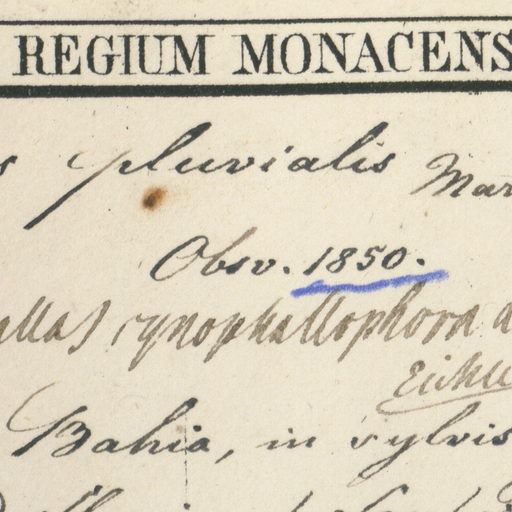 REGIUM MONACENS
s pluvialis Mar
Obsv. 1850.
cynophallophora
Eichl
Bahia, in sylvis